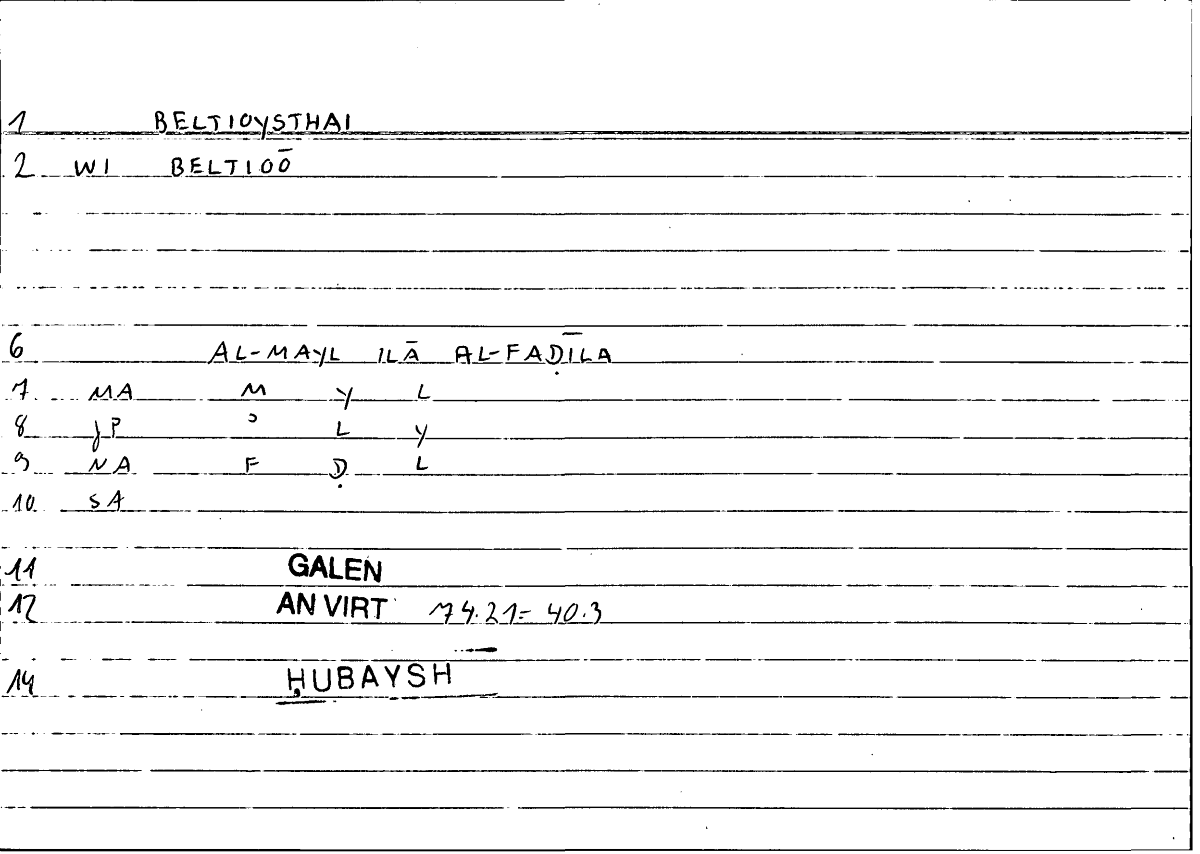 1 BELTIOYSTHAI
2 WI BELTIOŌ
6 AL-MAYL ILĀ AL-FAḌĪLA
7 MA M Y L
8 JP ʾ L Y
9 NA F Ḍ L
10 SA
11 GALEN
12 AN VIRT 74.21 = 40.3
14 ḤUBAYSH